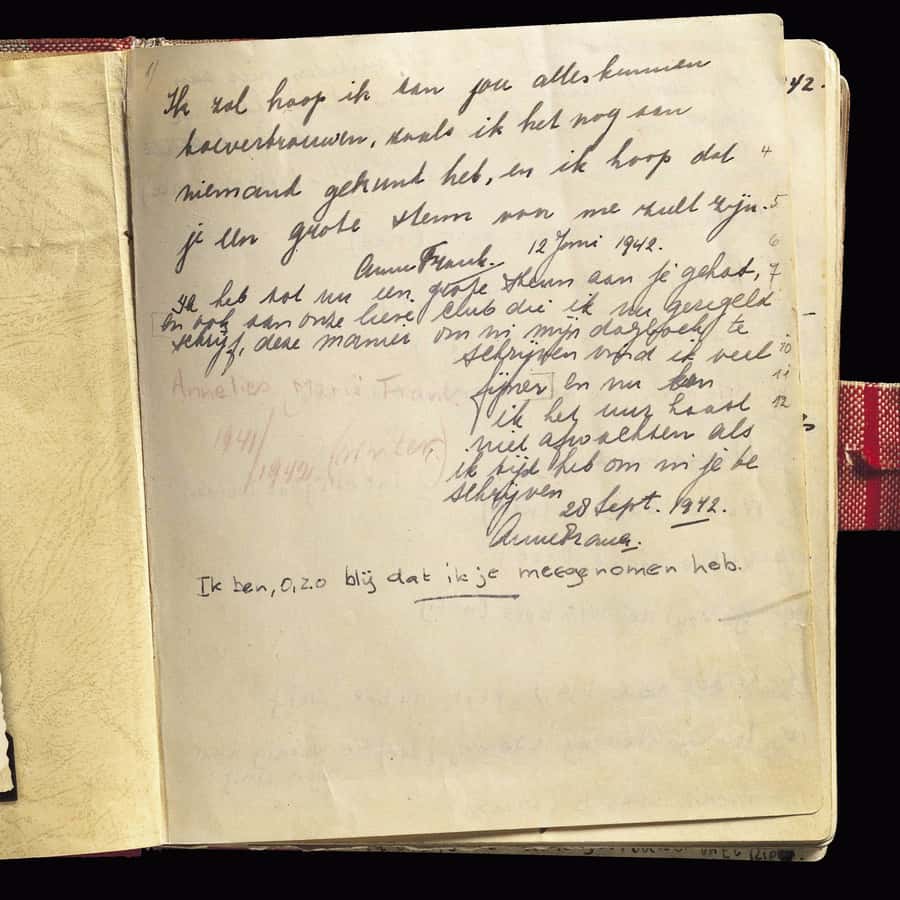 Ik zal hoop ik aan jou alles kunnen
toevertrouwen, zoals ik het nog aan
niemand gekund heb, en ik hoop dat
je een grote steun van me zult zijn.
Anne Frank. 12 Juni 1942.
Ik heb tot nu een grote steun aan je gehad,
en ook aan onze lieve club die ik nu geregeld
schrijf, deze manier om in mijn dagboek te
schrijven vind ik veel
fijner en nu kan
ik het uur haast
niet afwachten als
ik tijd heb om in je te
schrijven
28 Sept. 1942.
Anne Frank.
Ik ben, O, zo blij dat ik je meegenomen heb.
Annelies Marie Frank
1941/
1942. (winter)
42.
4
5
6
7
10
11
12